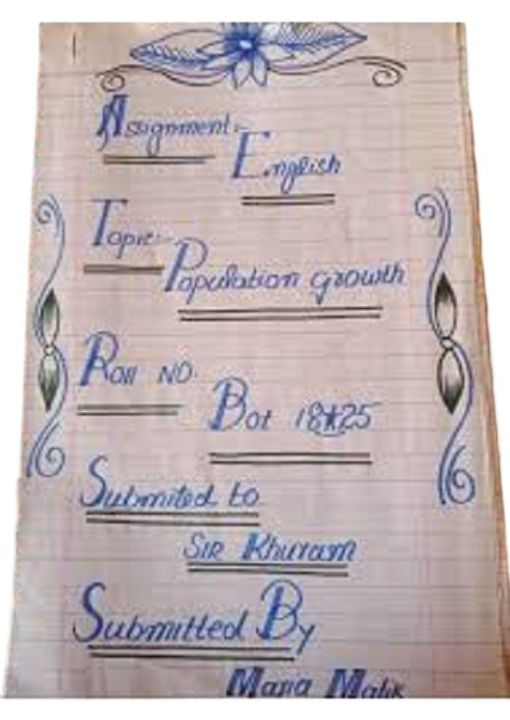 Assignment:-
English
Topic:-
Population growth
Roll NO.
Bot 18
Submited to
SIR Khuram
Submitted By
Maria Malik